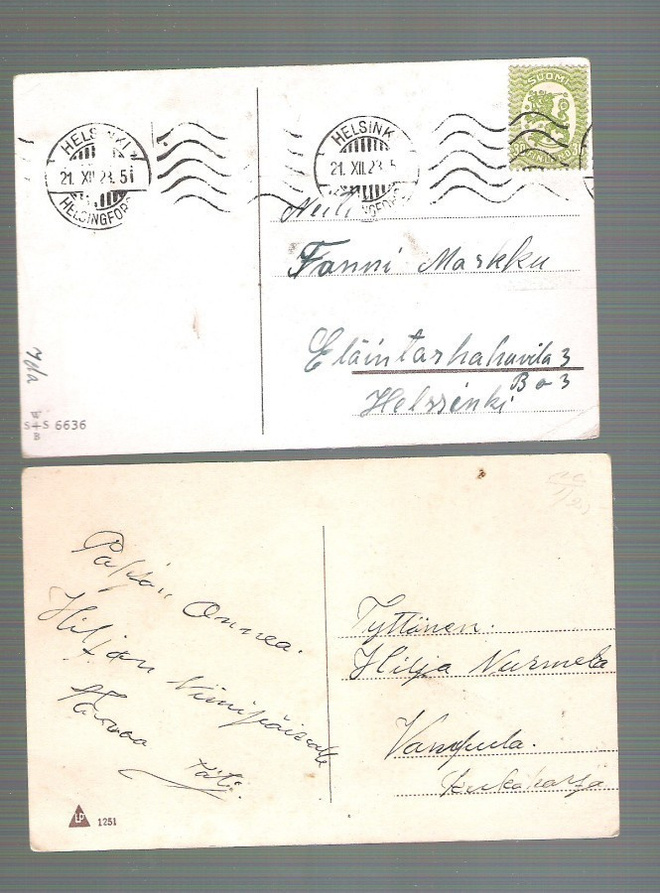 HELSINKI
21. XII.23. 5
HELSINGFORS
HELSINKI
21. XII.23. 5
SUOMI
FINLAND
Neiti
Fanni Markku
Eläintarhahuvila 3
B o 3
Helsinki
W
S+S 6636
B
Paljon Onnea.
Hiljan Nimipäivälle
Toivoo Täti.
Tyttönen.
Hilja Nurmela
Vampula.
Soukakorja
LP 1251